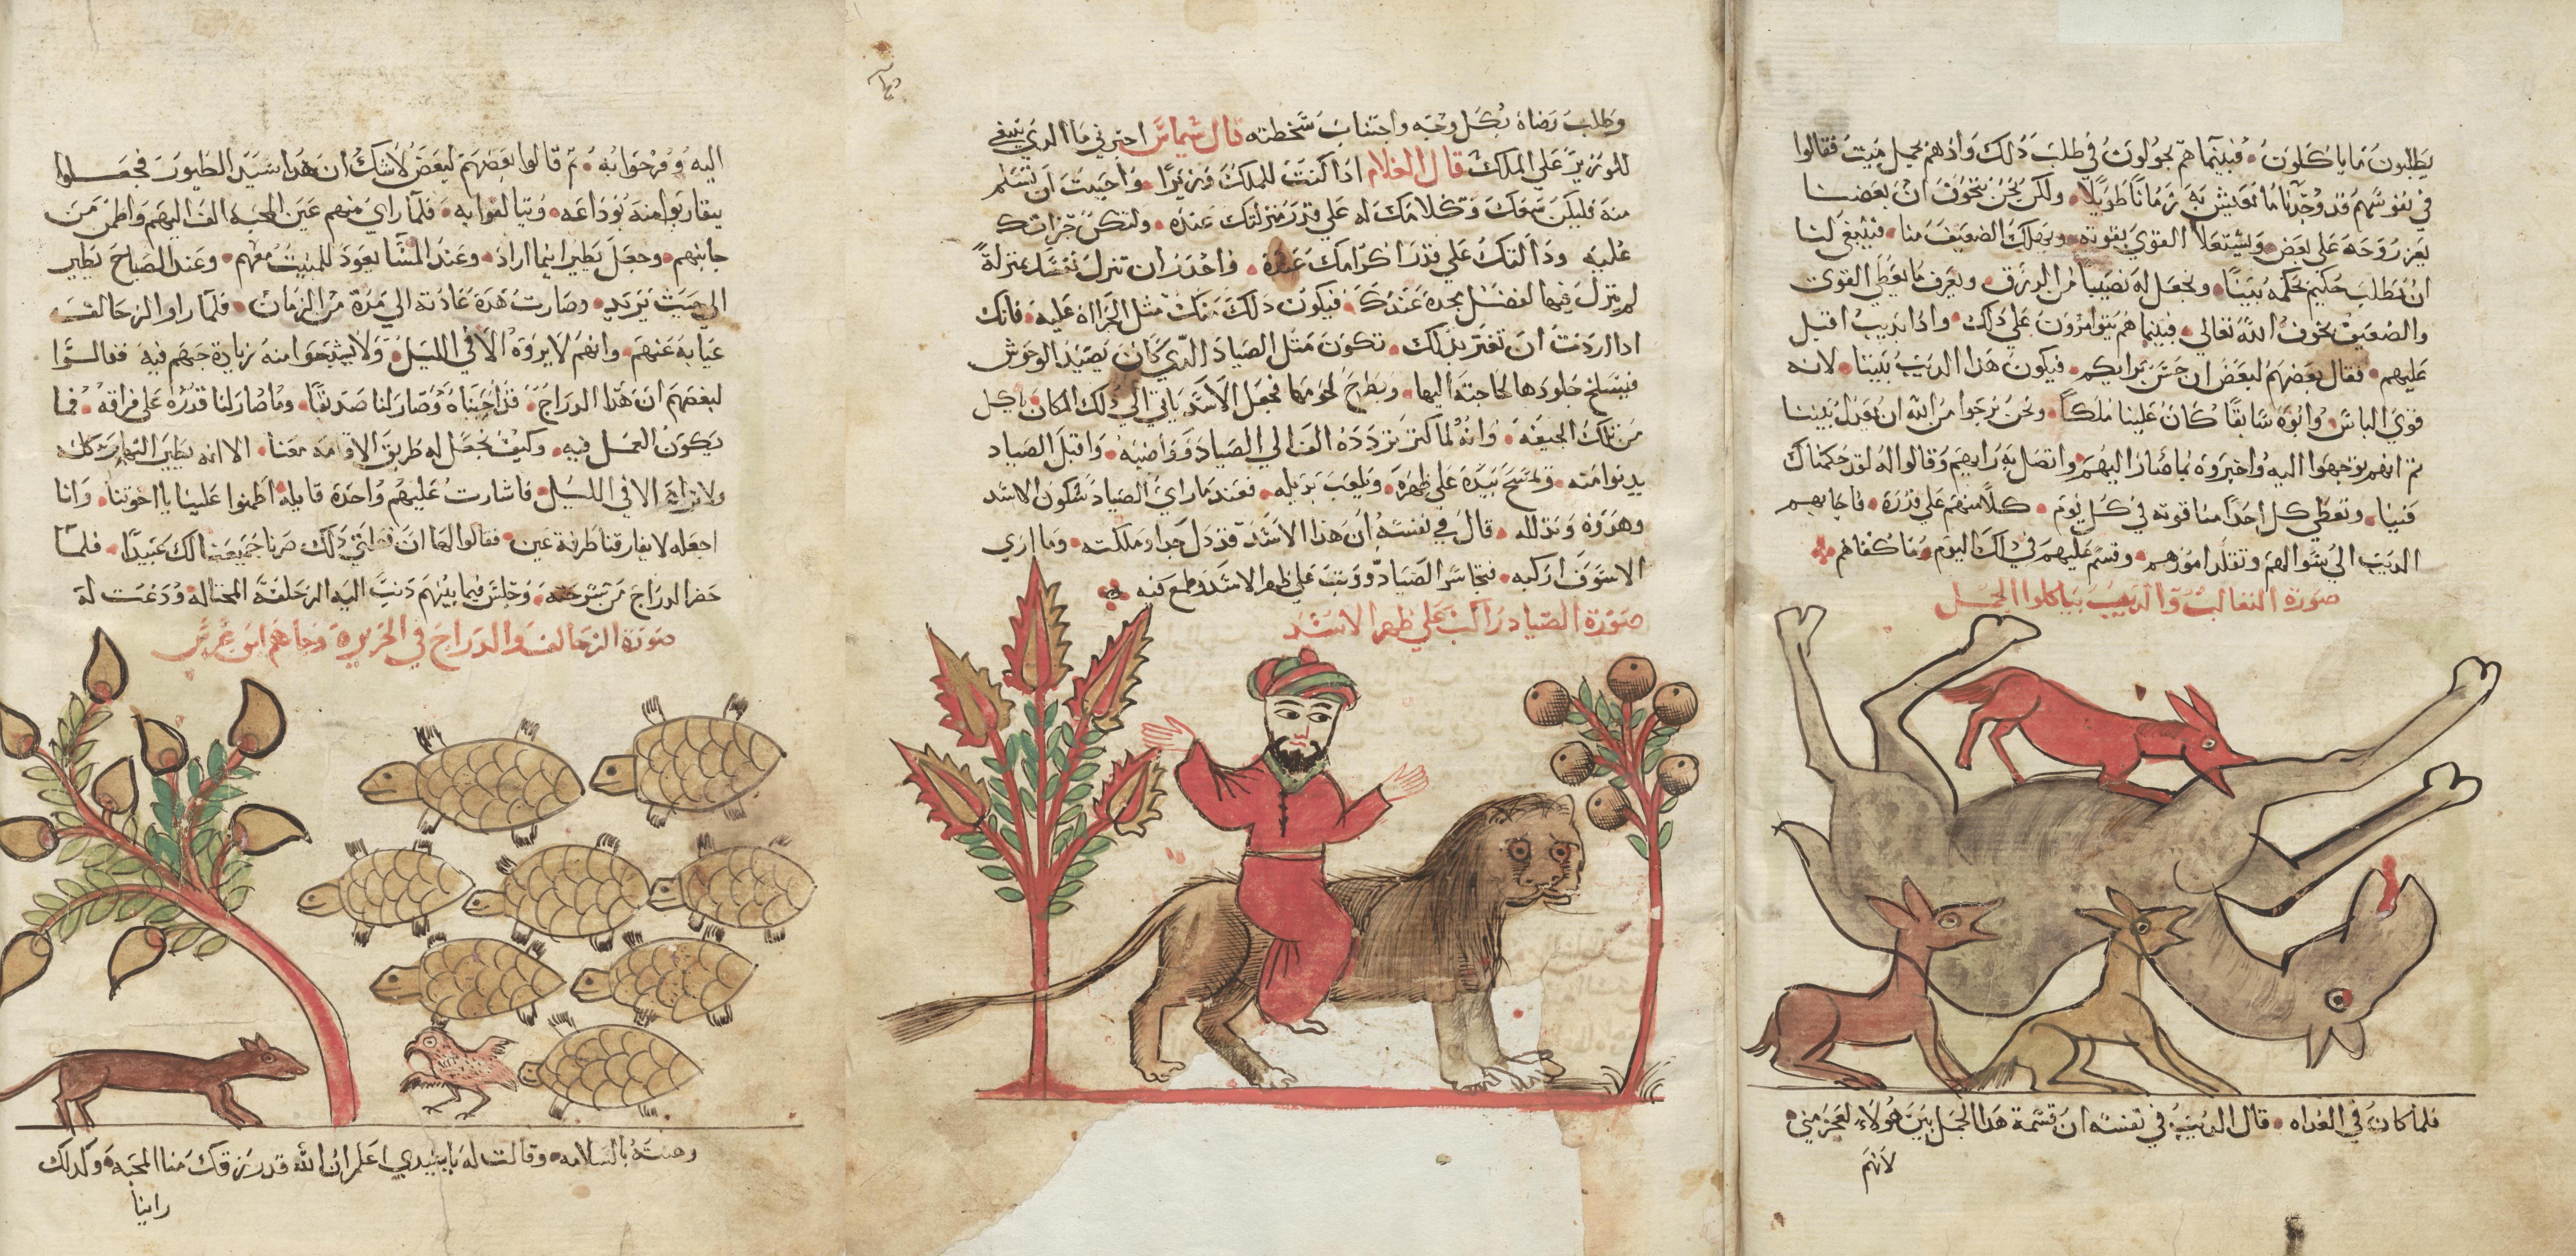 يطلبون ما ياكلون فبينما هم يجولون في طلب ذلك واذ هم بجمل ميت فقالوا
في نفوسهم قد وجدنا ما نعيش به زمانا طويلا ولكن نحن نخوف ان بعضنا
يعز روحه على بعض ويشتعلا القوي بقوته ويهلك الضعيف منا فينبغي لنا
ان نطلب حكيم نحكمه بيننا ونجعل له نصيبا من الرزق ويعرف ما يعطي القوي
والضعيف بخوف الله تعالي فبينما هم يتوامرون على ذلك واذا بديب اقبل
عليهم فقال بعضهم لبعض ان حسن برايكم فيكون هذا الديب بيننا لانه
قوي الباس وابوه سابقا كان علينا ملكا ونحن نرجوا من الله ان يعدل بيننا
ثم انهم توجهوا اليه واخبروه بما صار اليهم واتصل به رايهم وقالوا له لقد حكمناك
فينا وتعطي كل احدا منا قوته في كل يوم كلا منهم على قدره فاجابهم
الديب الى سوالهم وتقلد امورهم وقسم عليهم في ذلك اليوم ما كفاهم
صورة الثعالب والديب بياكلوا الجمل
فلما كان في الغداه قال الديب في نفسه ان قسمة هذا الجمل بين هولاء لعجز مني
لانهم
وطلب رضاه بكل وجه واجتناب سخطته قال شماس اخبرني ما الدي ينبغي
للوزير على الملك قال الغلام ادا كنت للملك وزيرا واحببت ان تسلم
منه فليكن سمعك وكلامك له علي قدر منزلتك عنده ولتكن جزاتك
عليه ودالتك علي قدر اكرامك عنده واحدر ان تنزل نفسك بمنزلة
لم ينزلك فيها لفضل يجده عندك فيكون دلك منك مثل الجزاه عليه فانك
ادا اردت ان تغتر بدلك تكون مثل الصياد الدي كان يصيد الوحوش
فيسلخ جلودها لحاجته اليها ويطرح لحومها فجعل الاسد ياتي الي دلك المكان ياكل
من تلك الجيفه وانه لما كثر تردده الف الي الصياد ووانسه واقبل الصياد
يدنوا منه ويمسح بيده على ظهره ويلعب بديله فعند ما راي الصياد سكون الاسد
وهدوه وتدلله قال في نفسه ان هذا الاسد قد دل جدا وملكته وما اري
الا سوف اركبه فتجاسر الصياد ووتب علي ظهر الاسد وطمع فيه
صورة الصياد راكب على ظهر الاسد
اليه وفرحوا به ثم قالوا بعضهم لبعض لا شك ان هدا سيد الطيور فجعلوا
يتقاربوا منه بوداعه ويتالفوا به فلما راي منهم عين المحبه الف اليهم واطمن من
جانبهم وجعل يطير اينما اراد وعند المسا يعود للمبيت معهم وعند الصباح يطير
الي حيث يريد وصارت هذه عادته الي مدة من الزمان فلما راوا الزحالف
غيابه عنهم وانهم لا يروه الا في الليل ولا يشبعوا منه زيادة حبهم فيه فقالوا
لبعضهم ان هذا الدراج قد احبناه وصار لنا صديقا وما صار لنا قدره على فراقه فما
يكون العمل فيه وكيف نجعل له طريق الاقامه معنا الا انه يطير النهار كله
ولا نراه الا في الليل فاشارت عليهم واحدة قايله اطمنوا علينا يا اخوتنا وانا
اجعله لا يفارقنا طرفة عين فقالوا لها ان فعلتي ذلك صرنا جميعنا لك عبيدا فلما
حضر الدراج من سرحته وجلس فيما بينهم دنت اليه الزحلفة المحتاله ودعت له
صورة الزحالف والدراج في الجزيرة وجاهم ابن عرس
وهنته بالسلامه وقالت له يا سيدي اعلم ان الله قد رزقك منا المحبة وكدلك
راينا